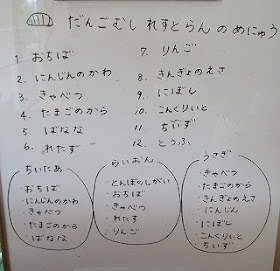 だんごむし れすとらん の めにゅう
1. おちば
2. にんじんのかわ
3. きゃべつ
4. たまごのから
5. ばなな
6. れたす
7. りんご
8. きんぎょのえさ
9. にぼし
10. こんくりいと
11. ちいず
12. とうふ
ちいたあ
・おちば
・にんじんのかわ
・きゃべつ
・たまごのから
・ばなな
らいおん
・とんぼのしがい
・おちば
・きゃべつ
・れたす
・りんご
うさぎ
・きゃべつ
・たまごのから
・きんぎょのえさ
・にんじん
・にぼし
・こんくりいと
・ちいず